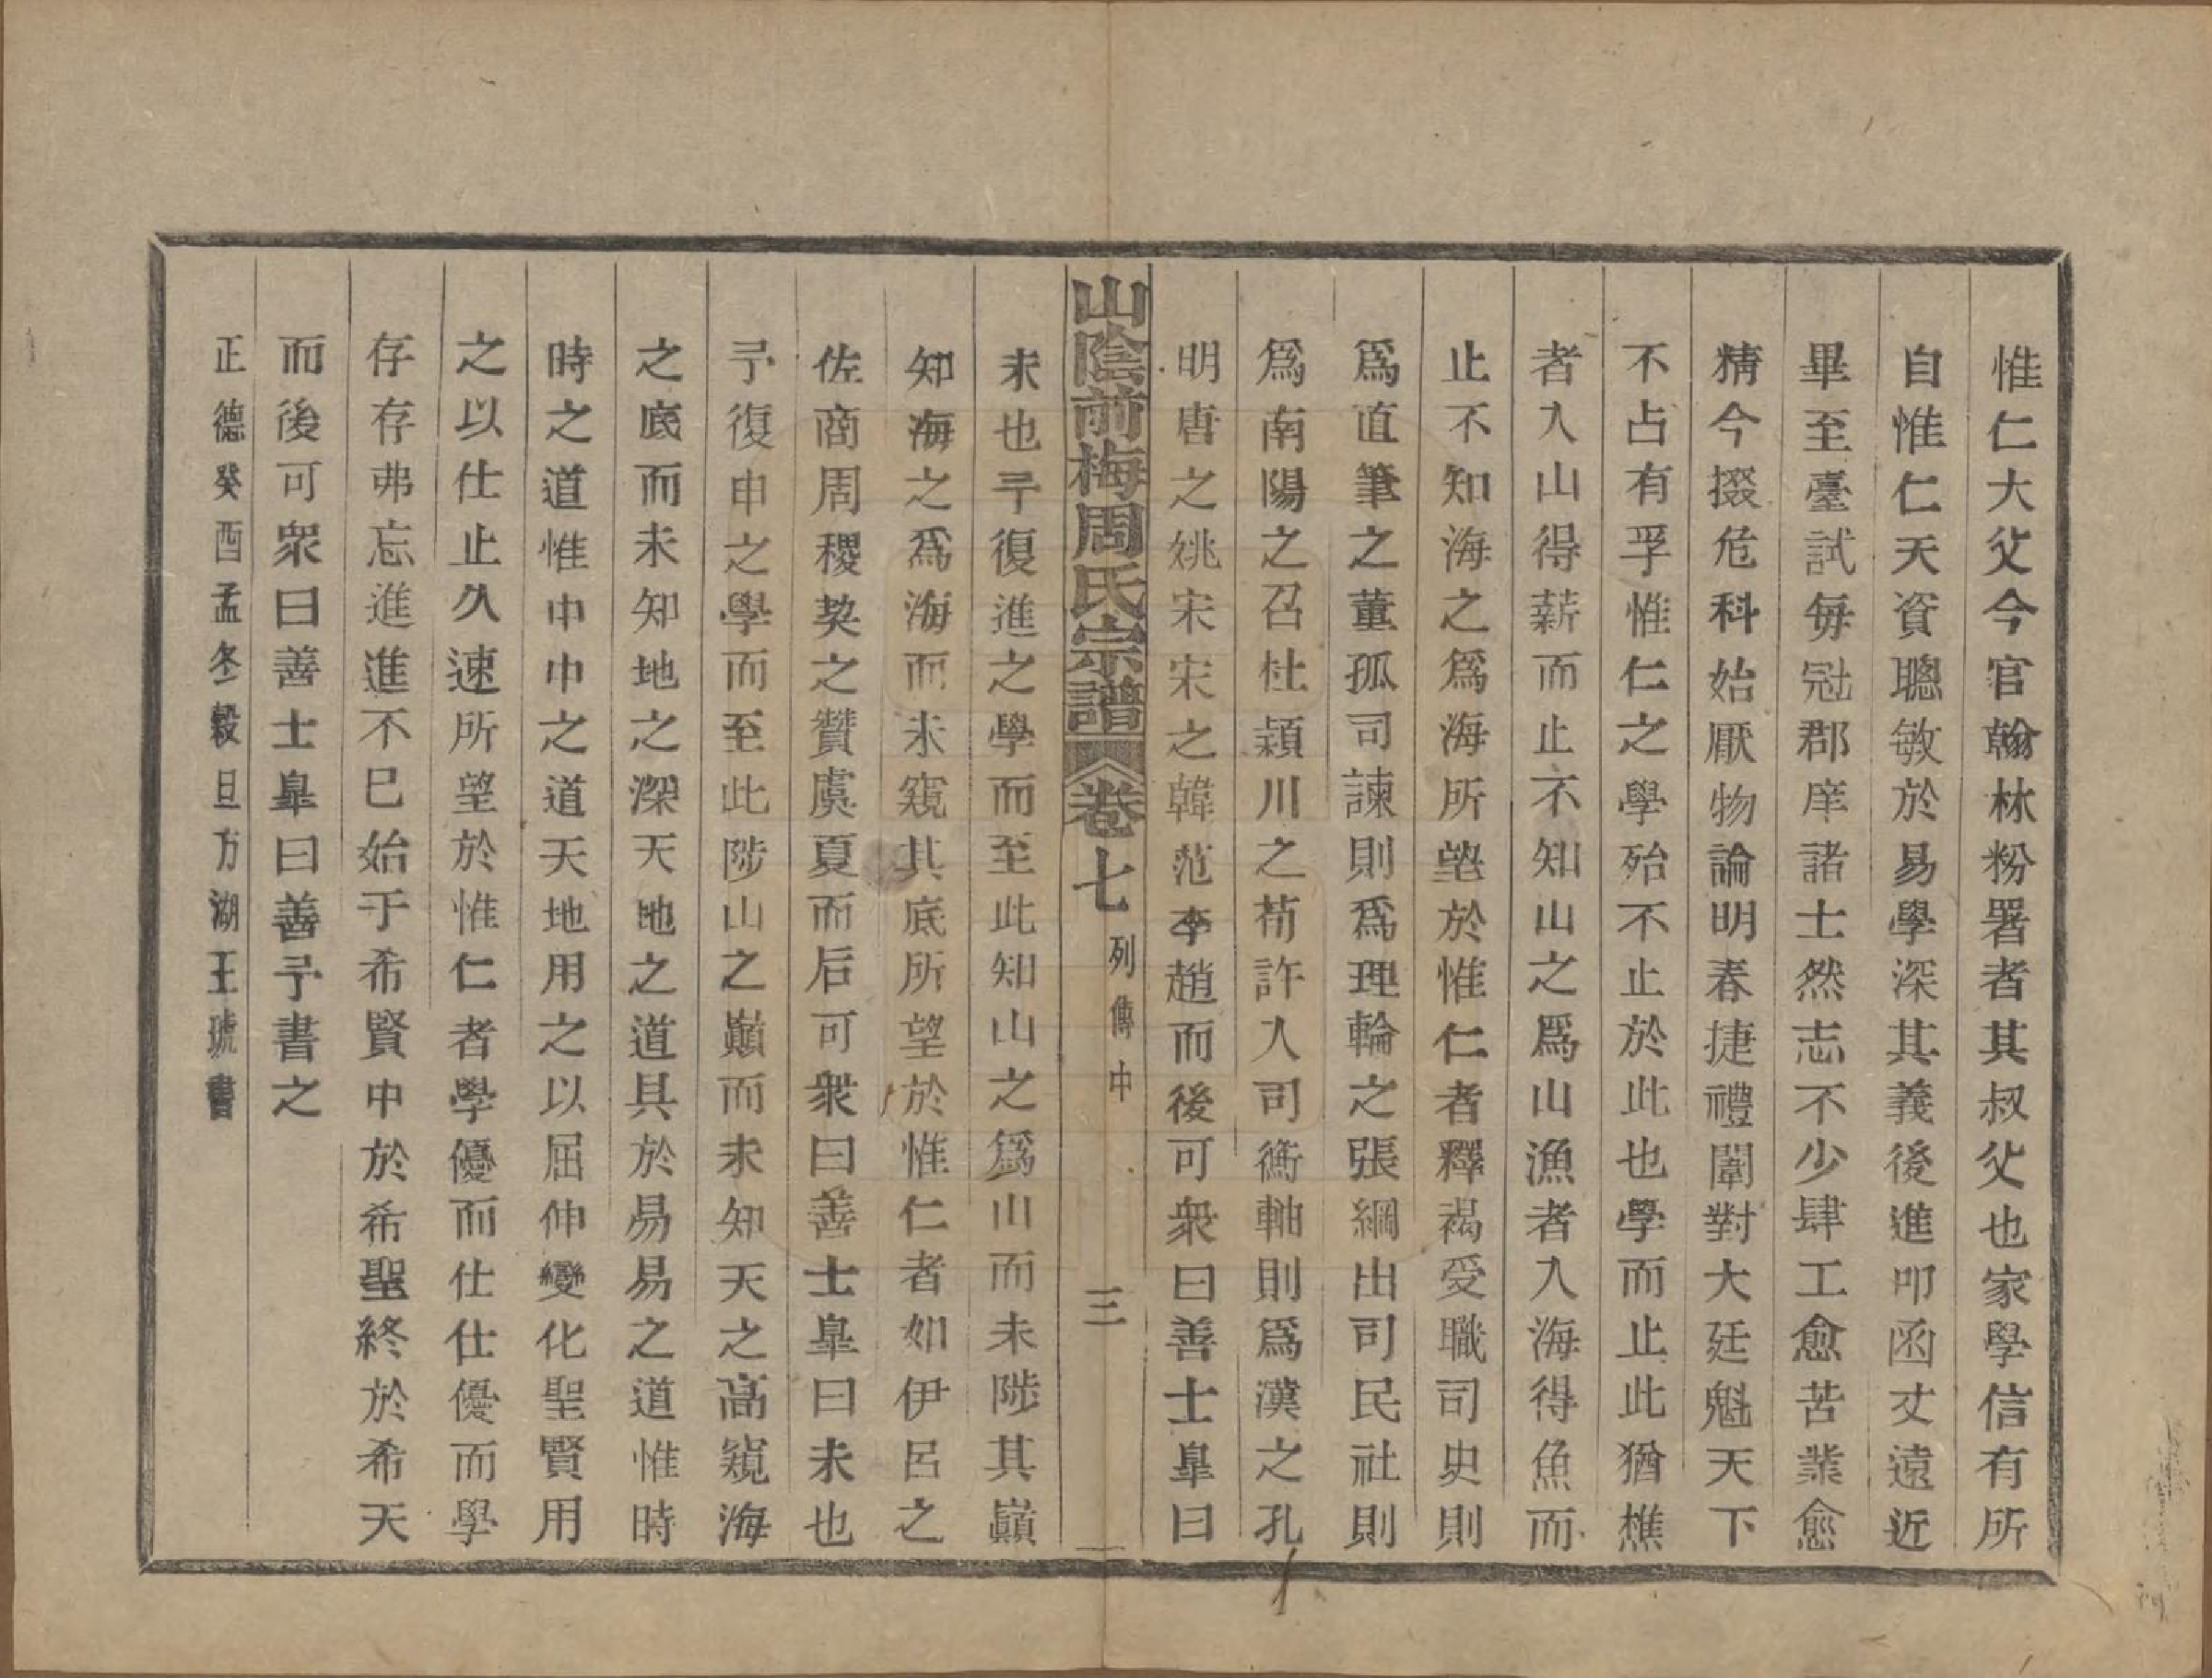 惟仁大父今官翰林粉署者其叔父也家學信有所
自惟仁天資聰敏於易學深其義後進叩函丈遠近
畢至臺試每冠郡庠諸士然志不少肆工愈苦業愈
精今掇危科始厭物論明春捷禮闈對大廷魁天下
不占有孚惟仁之學殆不止於此也學而止此猶樵
者入山得薪而止不知山之爲山漁者入海得魚而
止不知海之爲海所望於惟仁者釋褐受職司史則
爲直筆之董孤司諫則爲理輪之張綱出司民社則
爲南陽之召杜潁川之荀許入司衡軸則爲漢之孔
明唐之姚宋宋之韓范李趙而後可衆曰善士皐曰
山陰前梅周氏宗譜 卷七 列傳中 三
未也予復進之學而至此知山之爲山而未陟其巔
知海之爲海而未窺其底所望於惟仁者如伊呂之
佐商周稷契之贊虞夏而后可衆曰善士皐曰未也
予復申之學而至此陟山之巔而未知天之高窺海
之底而未知地之深天地之道具於易易之道惟時
時之道惟中中之道天地用之以屈伸變化聖賢用
之以仕止久速所望於惟仁者學優而仕仕優而學
存存弗忘進進不巳始于希賢中於希聖終於希天
而後可衆曰善士皐曰善予書之
正德癸酉孟冬穀旦方湖王琥書